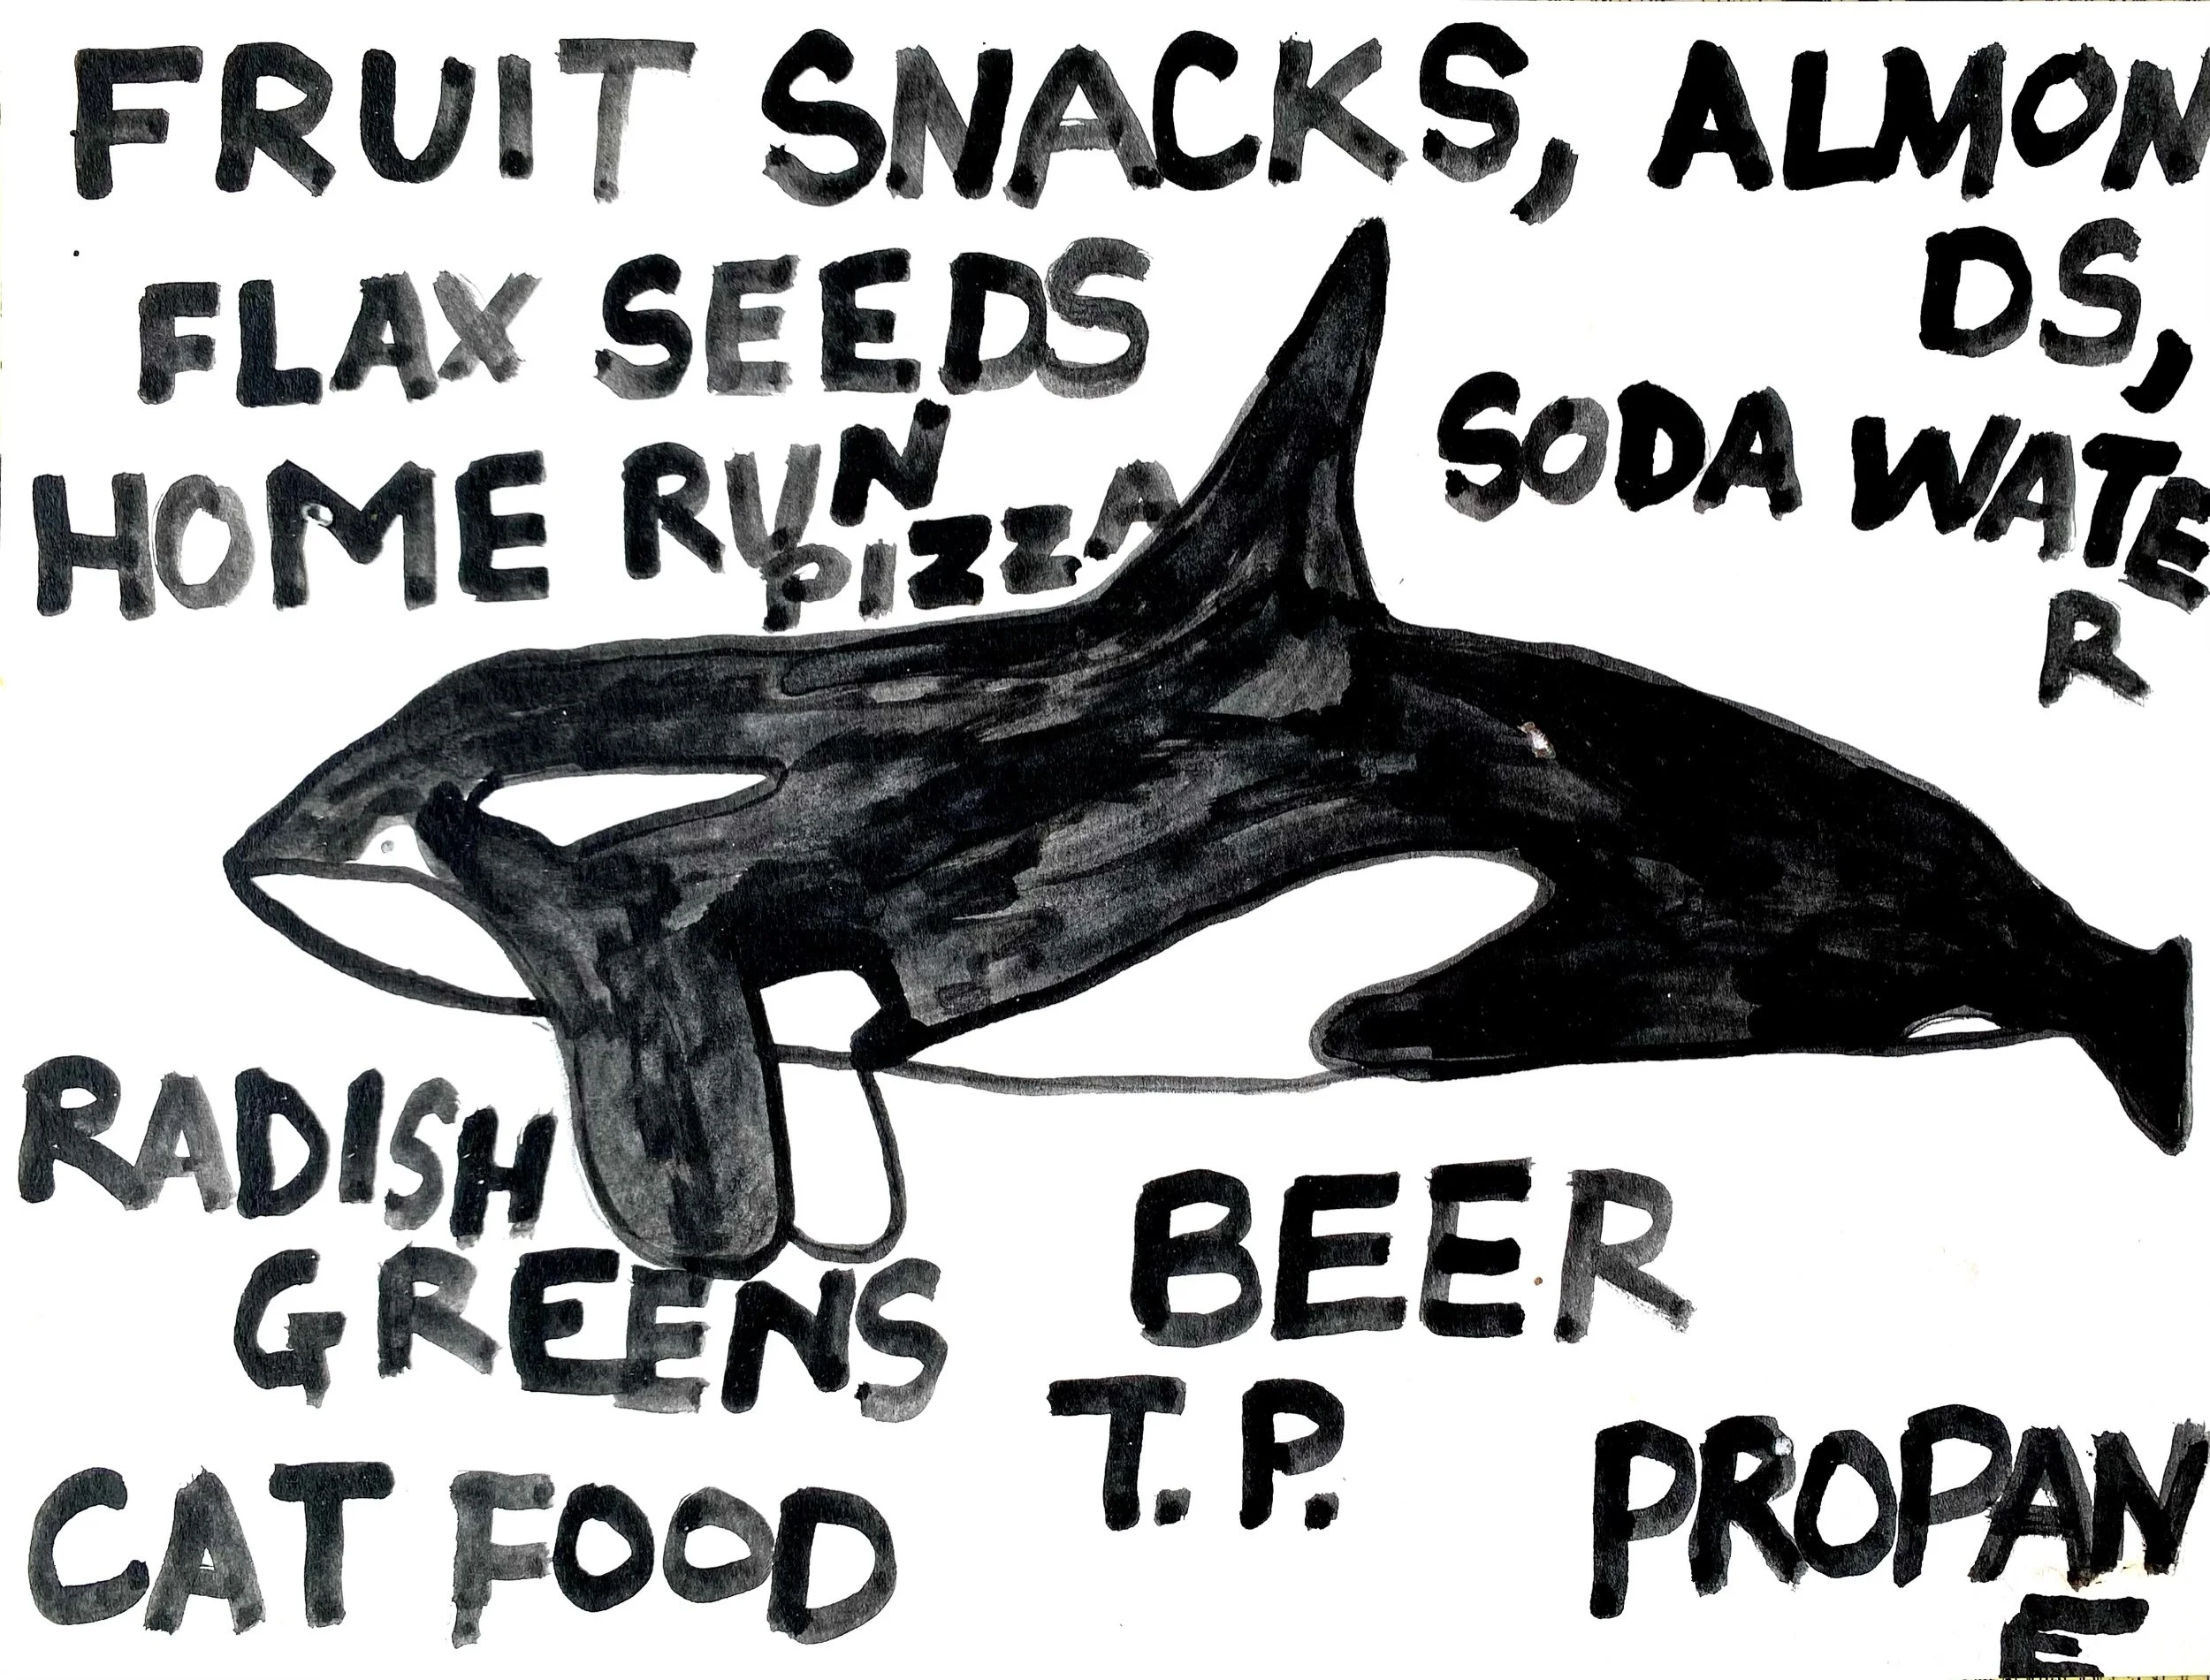 FRUIT SNACKS, ALMON
DS,
FLAX SEEDS
SODA WATE
R
HOME RUN
PIZZA
RADISH
GREENS
BEER
T.P.
CAT FOOD
PROPAN
E